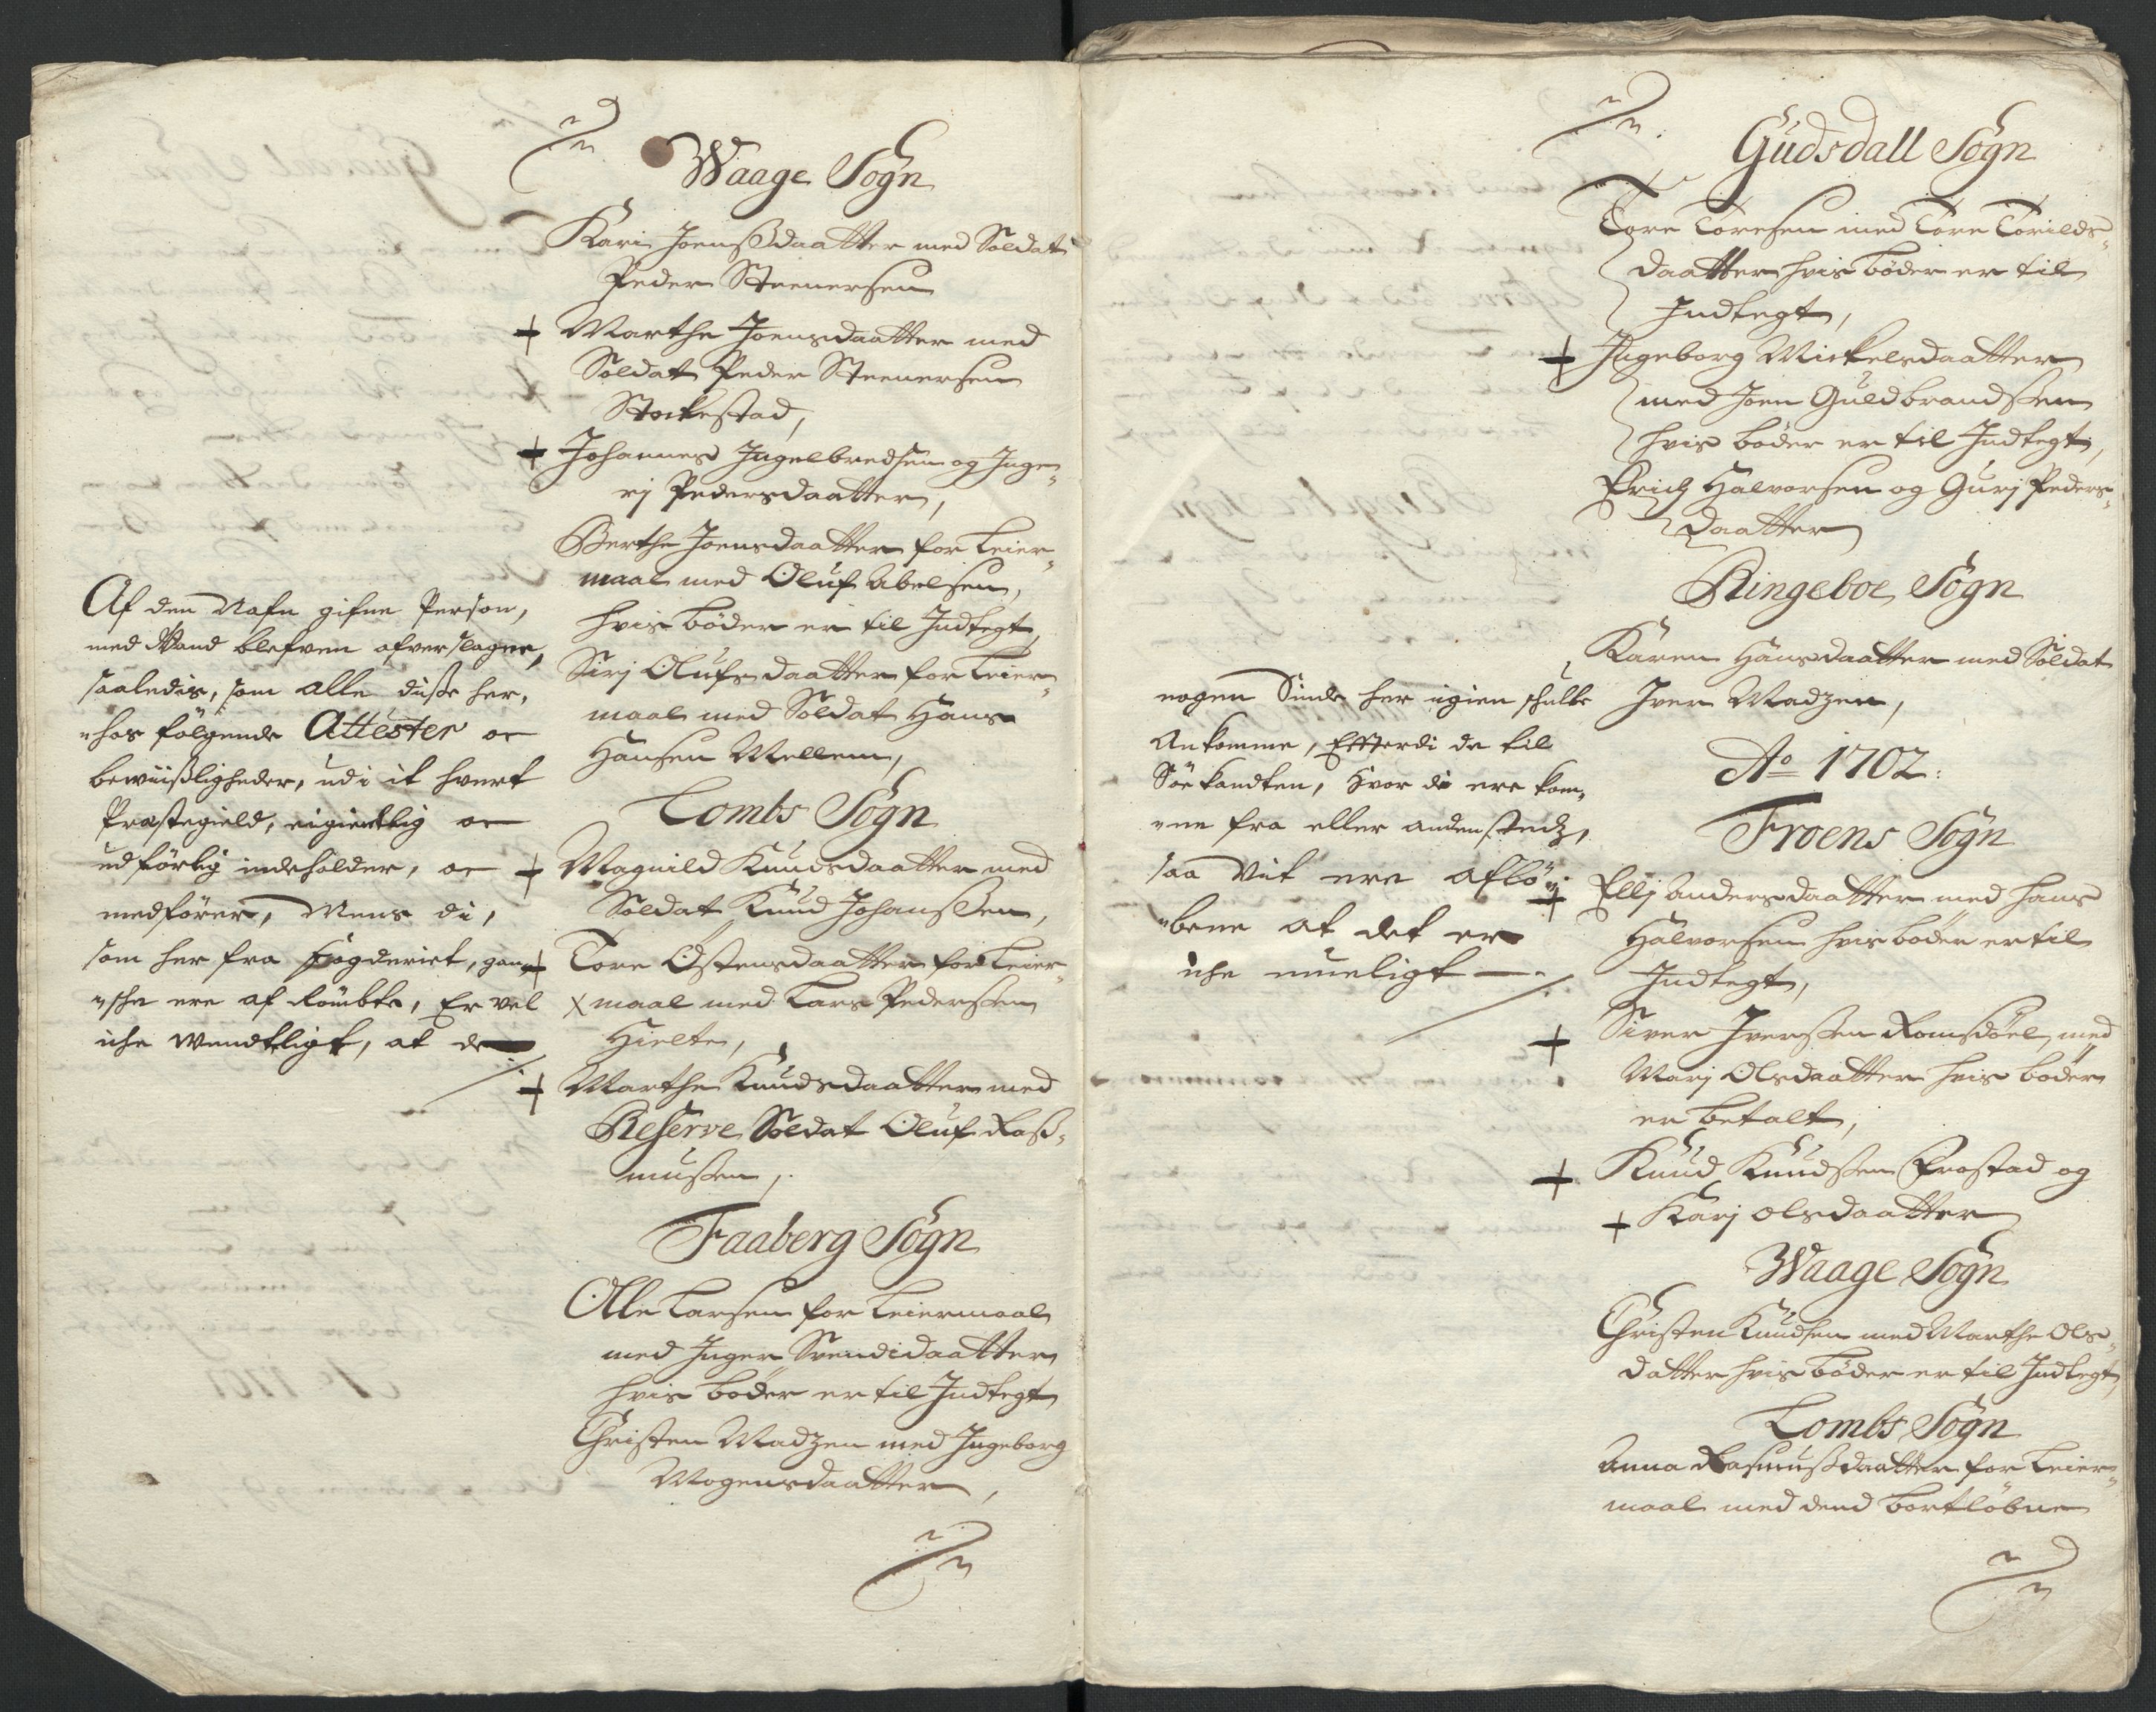 Waage Sogn
Kari Joenssdaatter med Soldat
Peder Steenersen
+ Marthe Joensdaatter med
Soldat Peder Steenersen
Stockestad,
+ Johannes Ingelbredsen og Inge-
rj Pedersdaatter,
Berthe Joensdaatter for Leier-
maal med Oluf Abelsen,
hvis bøder er til Indtegt,
Sirj Olufsdaatter for Leier-
maal med Soldat Hans
Hansen Mellem,
Lombs Sogn
+ Magnild Knudsdaatter med
Soldat Knud Johanssen,
+ Tore Østensdaatter for Leier-
x maal med Lars Pedersen
Hielte,
+ Marthe Knudsdaatter med
Reserve Soldat Oluf Rass-
mussen,
Faaberg Sogn
Olle Larsen for Leiermaal
med Inger Svendsdaatter
hvis bøder er til Indtegt
Christen Madzen med Ingeborg
Mogensdaatter,
Af den Nafn gifne Person,
med Wand blefven ofverslagne,
saaledis, som alle disse her,
"hos følgende Attester oc
bewiissligheder, udi it hvert
Præstegield, eigientlig oc
udførlig indeholder, oc
medfører, Mens di,
som her fra Fogderiet, gan-
"sche ere af Rømbte, Er vel
iche wendtligt, at de
Gudsdall Sogn
Tore Toresen med Tore Torilds-
daatter hvis bøder er til
Indtegt,
+ Ingeborg Mickelsdaatter
med Joen Guldbrandssen
hvis bøder er til Indtegt,
Erich Halvorsen og Gurj Peders-
daatter
Ringeboe Sogn
Karen Hansdaatter med Soldat
Iver Madzen,
Ao 1702:
Froens Sogn
+ Ellj Andersdaatter med Hans
Halvorsen hvis bøder er til
Indtegt,
+ Siver Iverssen Romsdøel med
Marj Olsdaatter hvis bøder
er betalt,
+ Knud Knudssen Frostad og
+ Karj Olsdaatter
Waage Sogn
Christen Knudsen med Marthe Ols-
datter hvis bøder er til Indtegt,
Lombs Sogn
Anna Rasmussdaatter for Leier-
maal med dend bortløbne
nogen Sinde her igien schulle
Ankomme, Effterdi de til
Søe kandten, hvor di ere kom-
"ne fra eller andenstedz,
saa vit ere afløf-
"bene at det er
iche mueligt —.